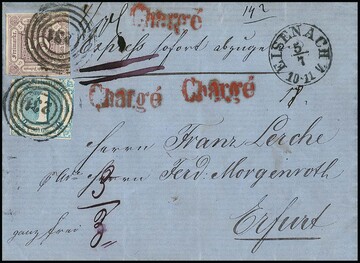 Chargé
Express sofort abzugeben
EISENACH
5/7
10-11
Chargé Chargé
Herrn Franz Lerche
Herrn Ferd: Morgenroth
Erfurt
ganz frei
3/3